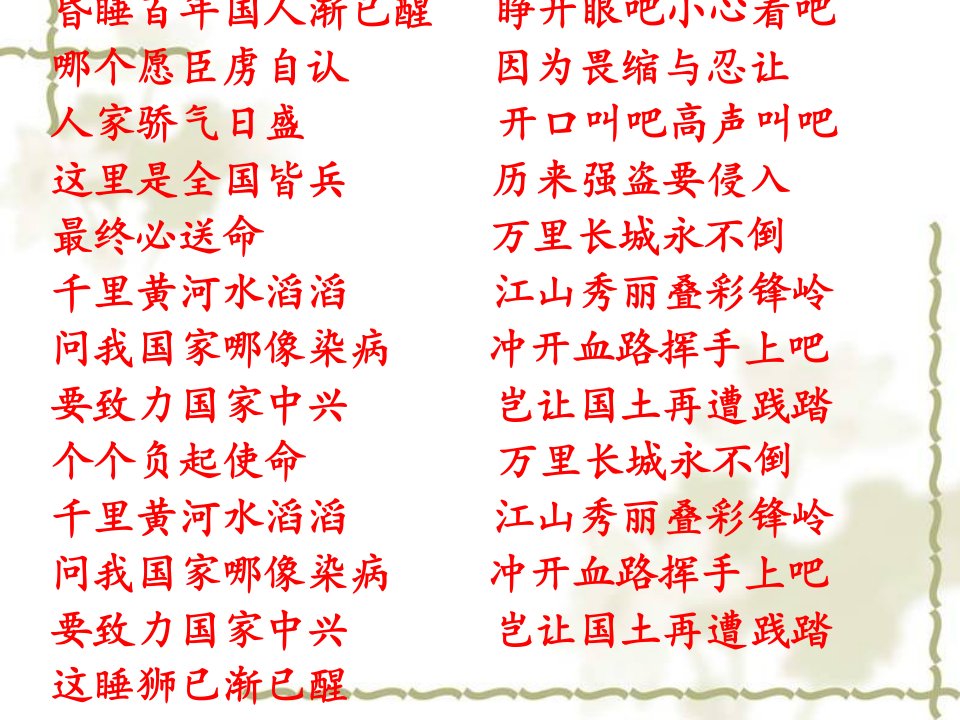 昏睡百年国人渐已醒 睁开眼吧小心看吧
哪个愿臣虏自认 因为畏缩与忍让
人家骄气日盛 开口叫吧高声叫吧
这里是全国皆兵 历来强盗要侵入
最终必送命 万里长城永不倒
千里黄河水滔滔 江山秀丽叠彩锋岭
问我国家哪像染病 冲开血路挥手上吧
要致力国家中兴 岂让国土再遭践踏
个个负起使命 万里长城永不倒
千里黄河水滔滔 江山秀丽叠彩锋岭
问我国家哪像染病 冲开血路挥手上吧
要致力国家中兴 岂让国土再遭践踏
这睡狮已渐已醒